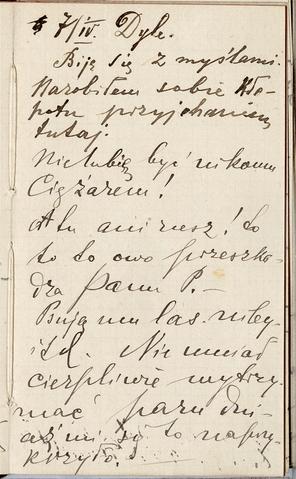 7/IV. Dyle.
Biję się z myślami.
Narobiłem sobie kło-
potu przyjechaniem
tutaj.
Nie lubię być nikomu
Ciężarem!
A tu ani rusz! to
to to owo przeszka-
dza Panu P.-
Bują mu las. niby
itd. Nie umiał
cierpliwie wytrzy-
mać paru dni
aż mi się to naprzy-
krzyło.